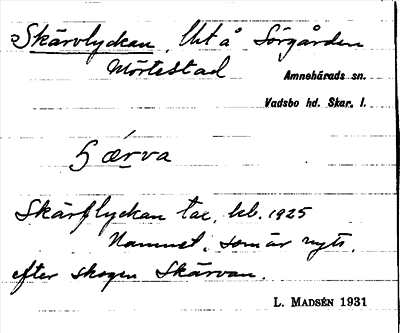 Skärvlyckan, Uht å Sörgården
Mörtestad
Amnehärads sn.
Vadsbo hd. Skar. l.
ærva
Skärflyckan tax, kb. 1925
Namnet, som är nytt,
efter skogen Skärvan.
L. MADSÉN 1931